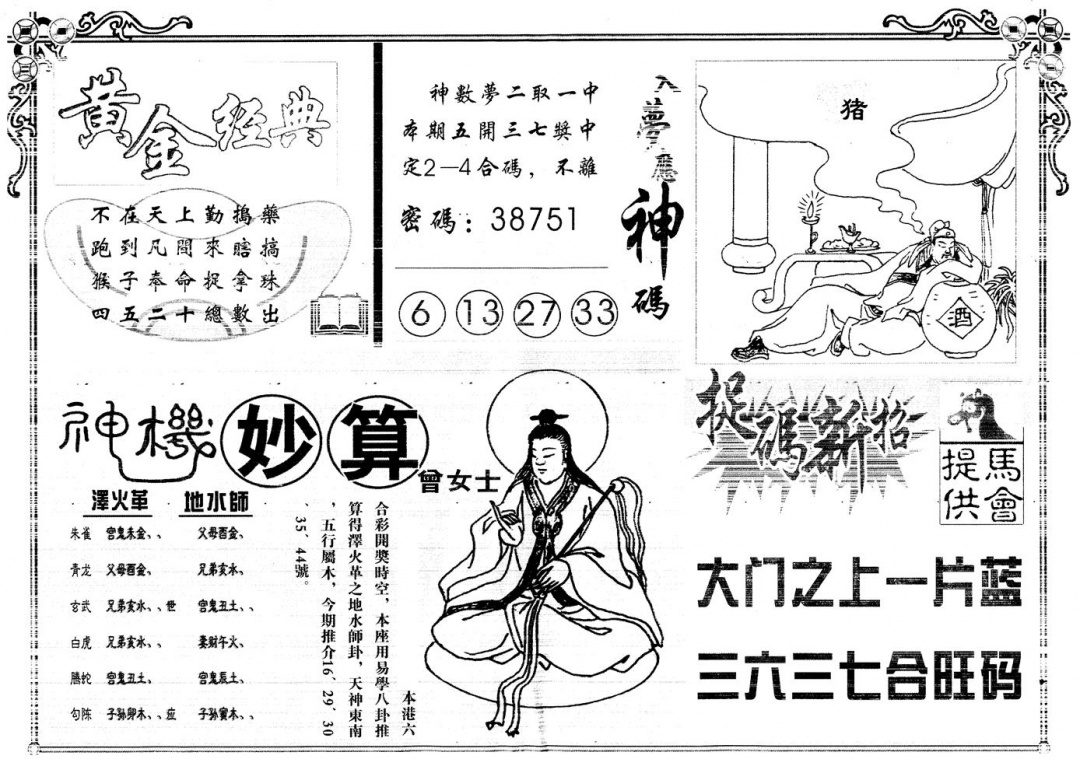 黄金经典
不在天上勤搗藥
跑到凡間來瞎搞
猴子奉命捉拿珠
四五二十總數出
神數夢二取一中
本期五開三七獎中
定2—4合碼，不離
密碼：38751
6 13 27 33
入夢應神碼
猪
酒
神機妙算
曾女士
澤火革 地水師
朱雀 宫鬼未金、、 父母酉金、、
青龙 父母酉金、 兄弟亥水、、
玄武 兄弟亥水、、世 宫鬼丑土、、
白虎 兄弟亥水、、 妻财午火、
騰蛇 宫鬼丑土、 宫鬼辰土、
勾陈 子孙卯木、、应 子孙寅木、、
本港六
合彩開獎時空，本座用易學八卦推
算得澤火革之地水師卦，天神東南
，五行屬木，今期推介16、29、30
、35、44號。
捉碼新招
馬會提供
大门之上一片蓝
三六三七合旺码